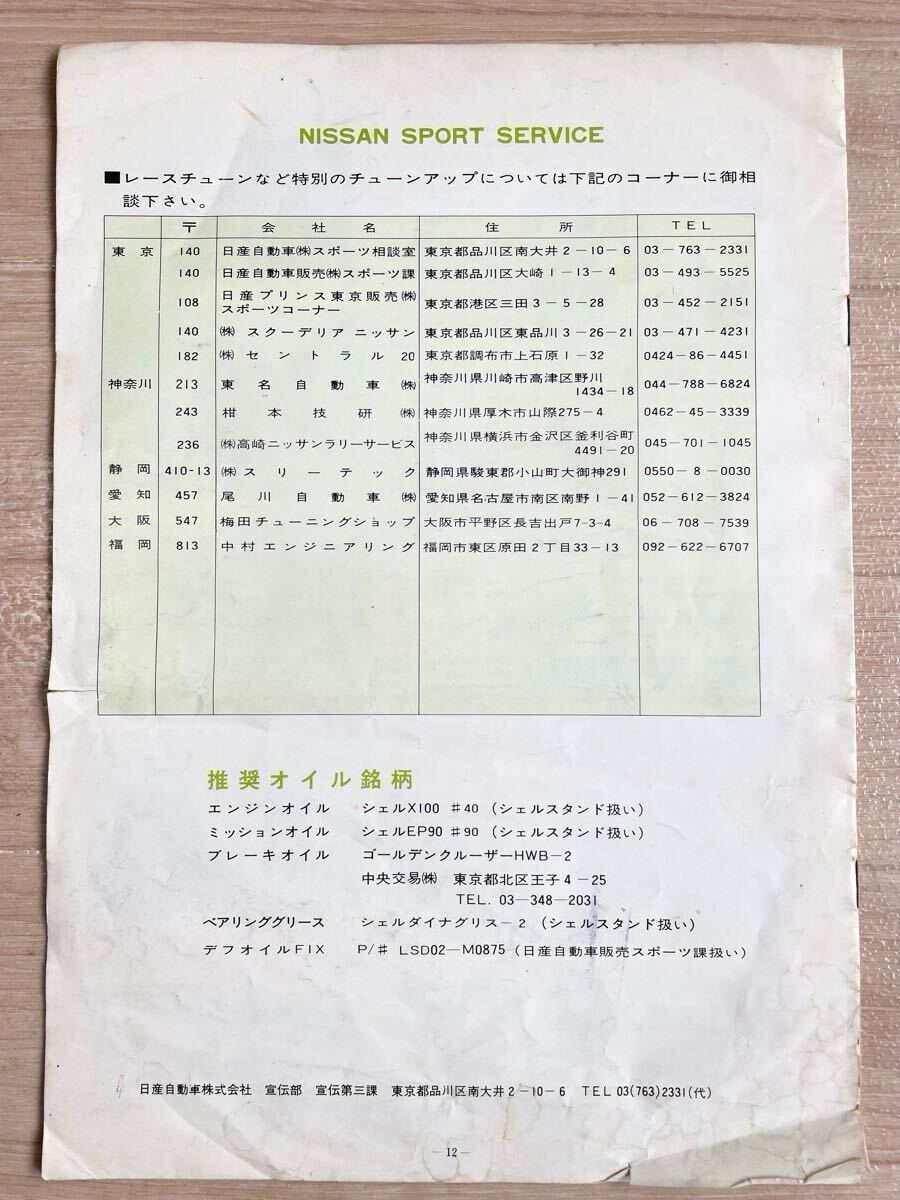 NISSAN SPORT SERVICE
■レースチューンなど特別のチューンアップについては下記のコーナーに御相
談下さい。
〒 会社名 住所 TEL
東京 140 日産自動車㈱スポーツ相談室 東京都品川区南大井2-10-6 03-763-2331
140 日産自動車販売㈱スポーツ課 東京都品川区大崎1-13-4 03-493-5525
108 日産プリンス東京販売㈱ 東京都港区三田3-5-28 03-452-2151
スポーツコーナー
140 ㈱スクーデリアニッサン 東京都品川区東品川3-26-21 03-471-4231
182 ㈱セントラル20 東京都調布市上石原1-32 0424-86-4451
神奈川 213 東名自動車㈱ 神奈川県川崎市高津区野川 044-788-6824
1434-18
243 柑本技研㈱ 神奈川県厚木市山際275-4 0462-45-3339
236 ㈱高崎ニッサンラリーサービス 神奈川県横浜市金沢区釜利谷町 045-701-1045
4491-20
静岡 410-13 ㈱スリーテック 静岡県駿東郡小山町大御神291 0550-8-0030
愛知 457 尾川自動車㈱ 愛知県名古屋市南区南野1-41 052-612-3824
大阪 547 梅田チューニングショップ 大阪市平野区長吉出戸7-3-4 06-708-7539
福岡 813 中村エンジニアリング 福岡市東区原田2丁目33-13 092-622-6707
推奨オイル銘柄
エンジンオイル シェルX100 ♯40 (シェルスタンド扱い)
ミッションオイル シェルEP90 ♯90 (シェルスタンド扱い)
ブレーキオイル ゴールデンクルーザーHWB-2
中央交易㈱ 東京都北区王子4-25
TEL. 03-348-2031
ベアリンググリース シェルダイナグリス-2 (シェルスタンド扱い)
デフオイルFIX P/♯ LSD02-M0875 (日産自動車販売スポーツ課扱い)
日産自動車株式会社 宣伝部 宣伝第三課 東京都品川区南大井2-10-6 TEL 03(763)2331(代)
-12-